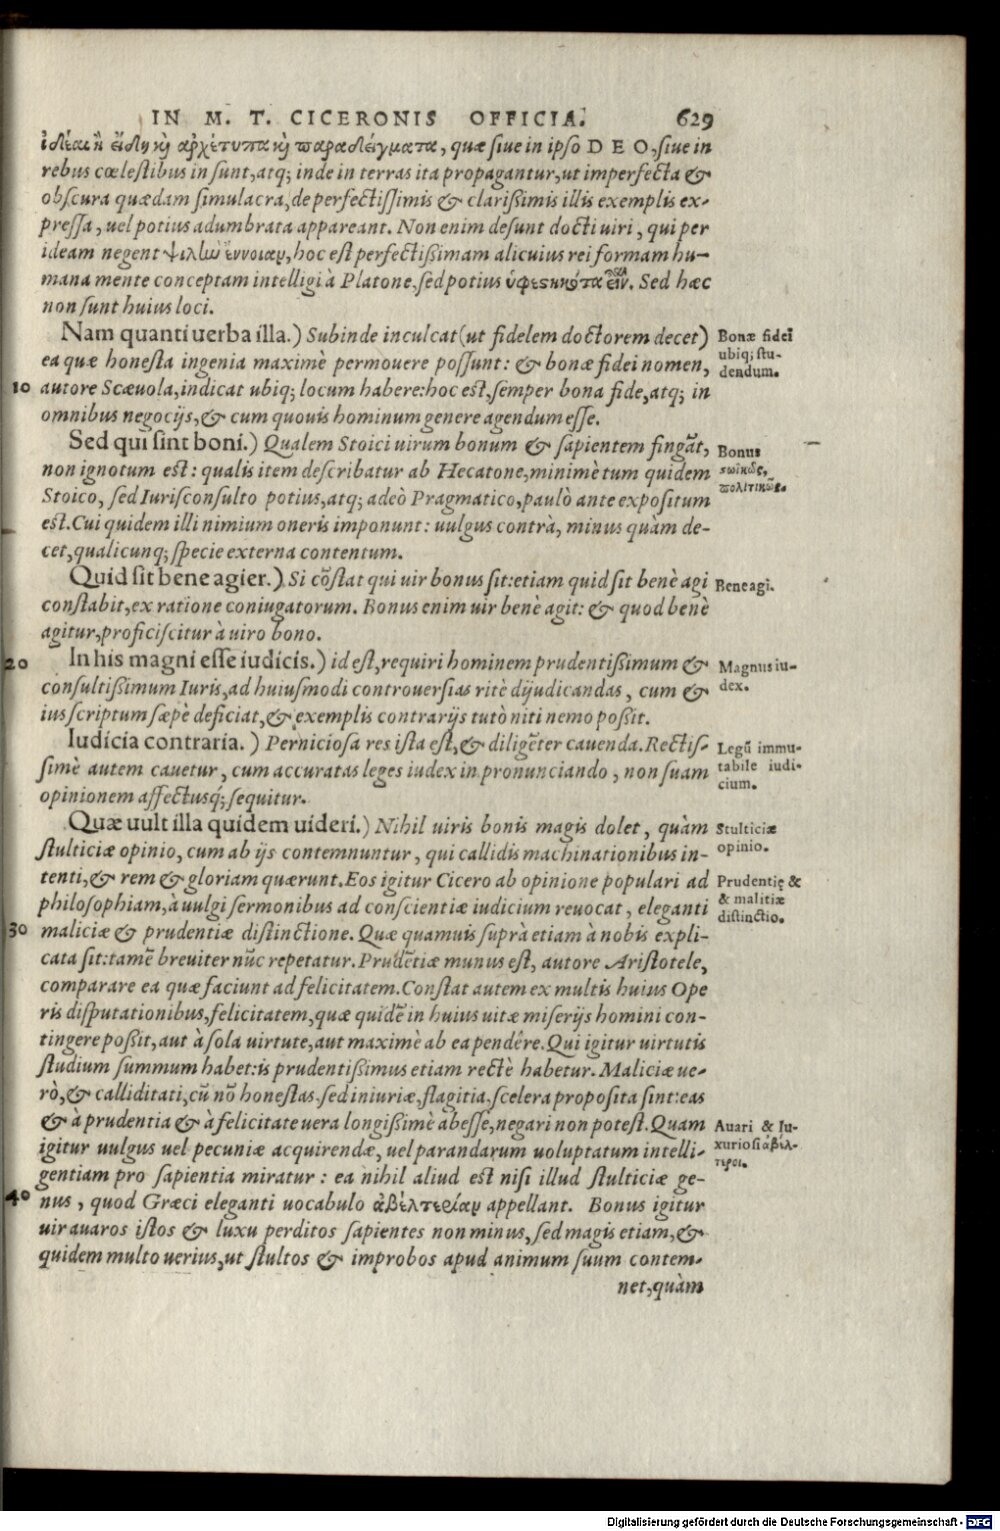 IN M. T. CICERONIS OFFICIA. 629
ἰδέαι ἢ εἴδη κὶ ἀρχέτυπα κὶ παραδείγματα, quæ siue in ipso DEO, siue in
rebus cœlestibus insunt, atq; inde in terras ita propagantur, ut imperfecta &
obscura quædam simulacra, de perfectissimis & clarißimis illis exemplis ex-
pressa, uel potius adumbrata appareant. Non enim desunt docti uiri, qui per
ideam negent ψιλὼ ἔννοιαν, hoc est perfectißimam alicuius rei formam hu-
mana mente conceptam intelligi à Platone, sed potius ὑφεστηκότα Sed hæc
non sunt huius loci.
Nam quanti uerba illa.) Subinde inculcat (ut fidelem doctorem decet)
Bonæ fidei
ubiq; stu-
dendum.
ea quæ honesta ingenia maximè permouere possunt: & bonæ fidei nomen,
10 autore Scæuola, indicat ubiq; locum habere: hoc est, semper bona fide, atq; in
omnibus negocijs, & cum quouis hominum genere agendum esse.
Sed qui sint boni.) Qualem Stoici uirum bonum & sapientem fingāt,
Bonus
στωικῶς,
πολιτικῶς.
non ignotum est: qualis item describatur ab Hecatone, minimè tum quidem
Stoico, sed Iurisconsulto potius, atq; adeò Pragmatico, paulò ante expositum
est. Cui quidem illi nimium oneris imponunt: uulgus contrà, minus quàm de-
cet, qualicunq; specie externa contentum.
Quid sit bene agier.) Si cōstat qui uir bonus sit: etiam quid sit benè agi
Bene agi.
constabit, ex ratione coniugatorum. Bonus enim uir benè agit: & quod benè
agitur, proficiscitur à uiro bono.
20 In his magni esse iudicis.) id est, requiri hominem prudentißimum &
Magnus iu-
dex.
consultißimum Iuris, ad huiusmodi controuersias ritè dijudicandas, cum &
ius scriptum sæpè deficiat, & exemplis contrarijs tutò niti nemo poßit.
Iudicia contraria.) Perniciosa res ista est, & diligēter cauenda. Rectis-
Legū immu-
tabile iudi-
cium.
simè autem cauetur, cum accuratas leges iudex in pronunciando, non suam
opinionem affectusq́; sequitur.
Quæ uult illa quidem uideri.) Nihil uiris bonis magis dolet, quàm
Stulticiæ
opinio.
stulticiæ opinio, cum ab ijs contemnuntur, qui callidis machinationibus in-
tenti, & rem & gloriam quærunt. Eos igitur Cicero ab opinione populari ad
Prudentię &
& malitiæ
distinctio.
philosophiam, à uulgi sermonibus ad conscientiæ iudicium reuocat, eleganti
30 maliciæ & prudentiæ distinctione. Quæ quamuis suprà etiam à nobis expli-
cata sit: tamē breuiter nūc repetatur. Prudētiæ munus est, autore Aristotele,
comparare ea quæ faciunt ad felicitatem. Constat autem ex multis huius Ope
ris disputationibus, felicitatem, quæ quidē in huius uitæ miserijs homini con-
tingere poßit, aut à sola uirtute, aut maximè ab ea pendêre. Qui igitur uirtutis
studium summum habet: is prudentißimus etiam rectè habetur. Maliciæ ue-
rò, & calliditati, cū nō honestas, sed iniuriæ, flagitia, scelera proposita sint: eas
& à prudentia & à felicitate uera longißimè abesse, negari non potest. Quam
Auari & lu-
xuriosi ἀβέλ-
τεροι.
igitur uulgus uel pecuniæ acquirendæ, uel parandarum uoluptatum intelli-
gentiam pro sapientia miratur: ea nihil aliud est nisi illud stulticiæ ge-
40 nus, quod Græci eleganti uocabulo ἀβελτερίαν appellant. Bonus igitur
uir auaros istos & luxu perditos sapientes non minus, sed magis etiam, &
quidem multo uerius, ut stultos & improbos apud animum suum contem-
net, quàm
Digitalisierung gefördert durch die Deutsche Forschungsgemeinschaft - DFG